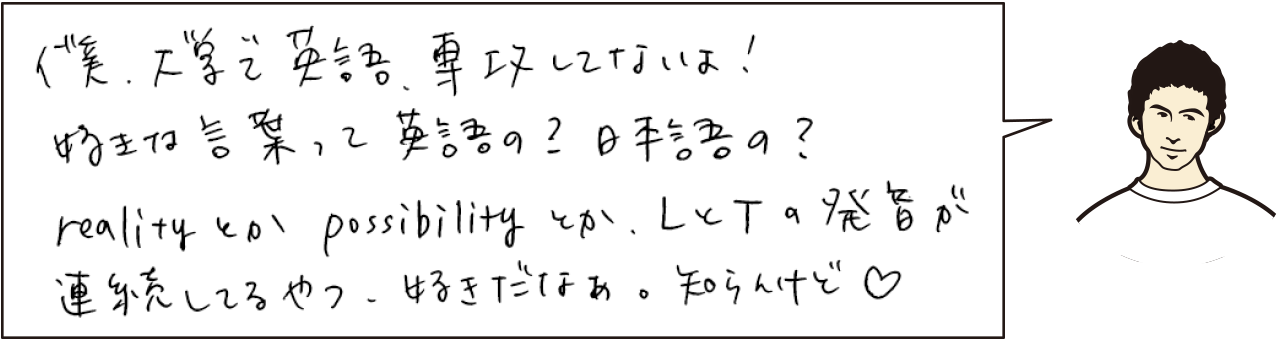 僕、大学で英語、専攻してないよ！
好きな言葉って英語の？日本語の？
realityとか possibilityとか、LとTの発音が
連続してるやつ、好きだなぁ。知らんけど♡